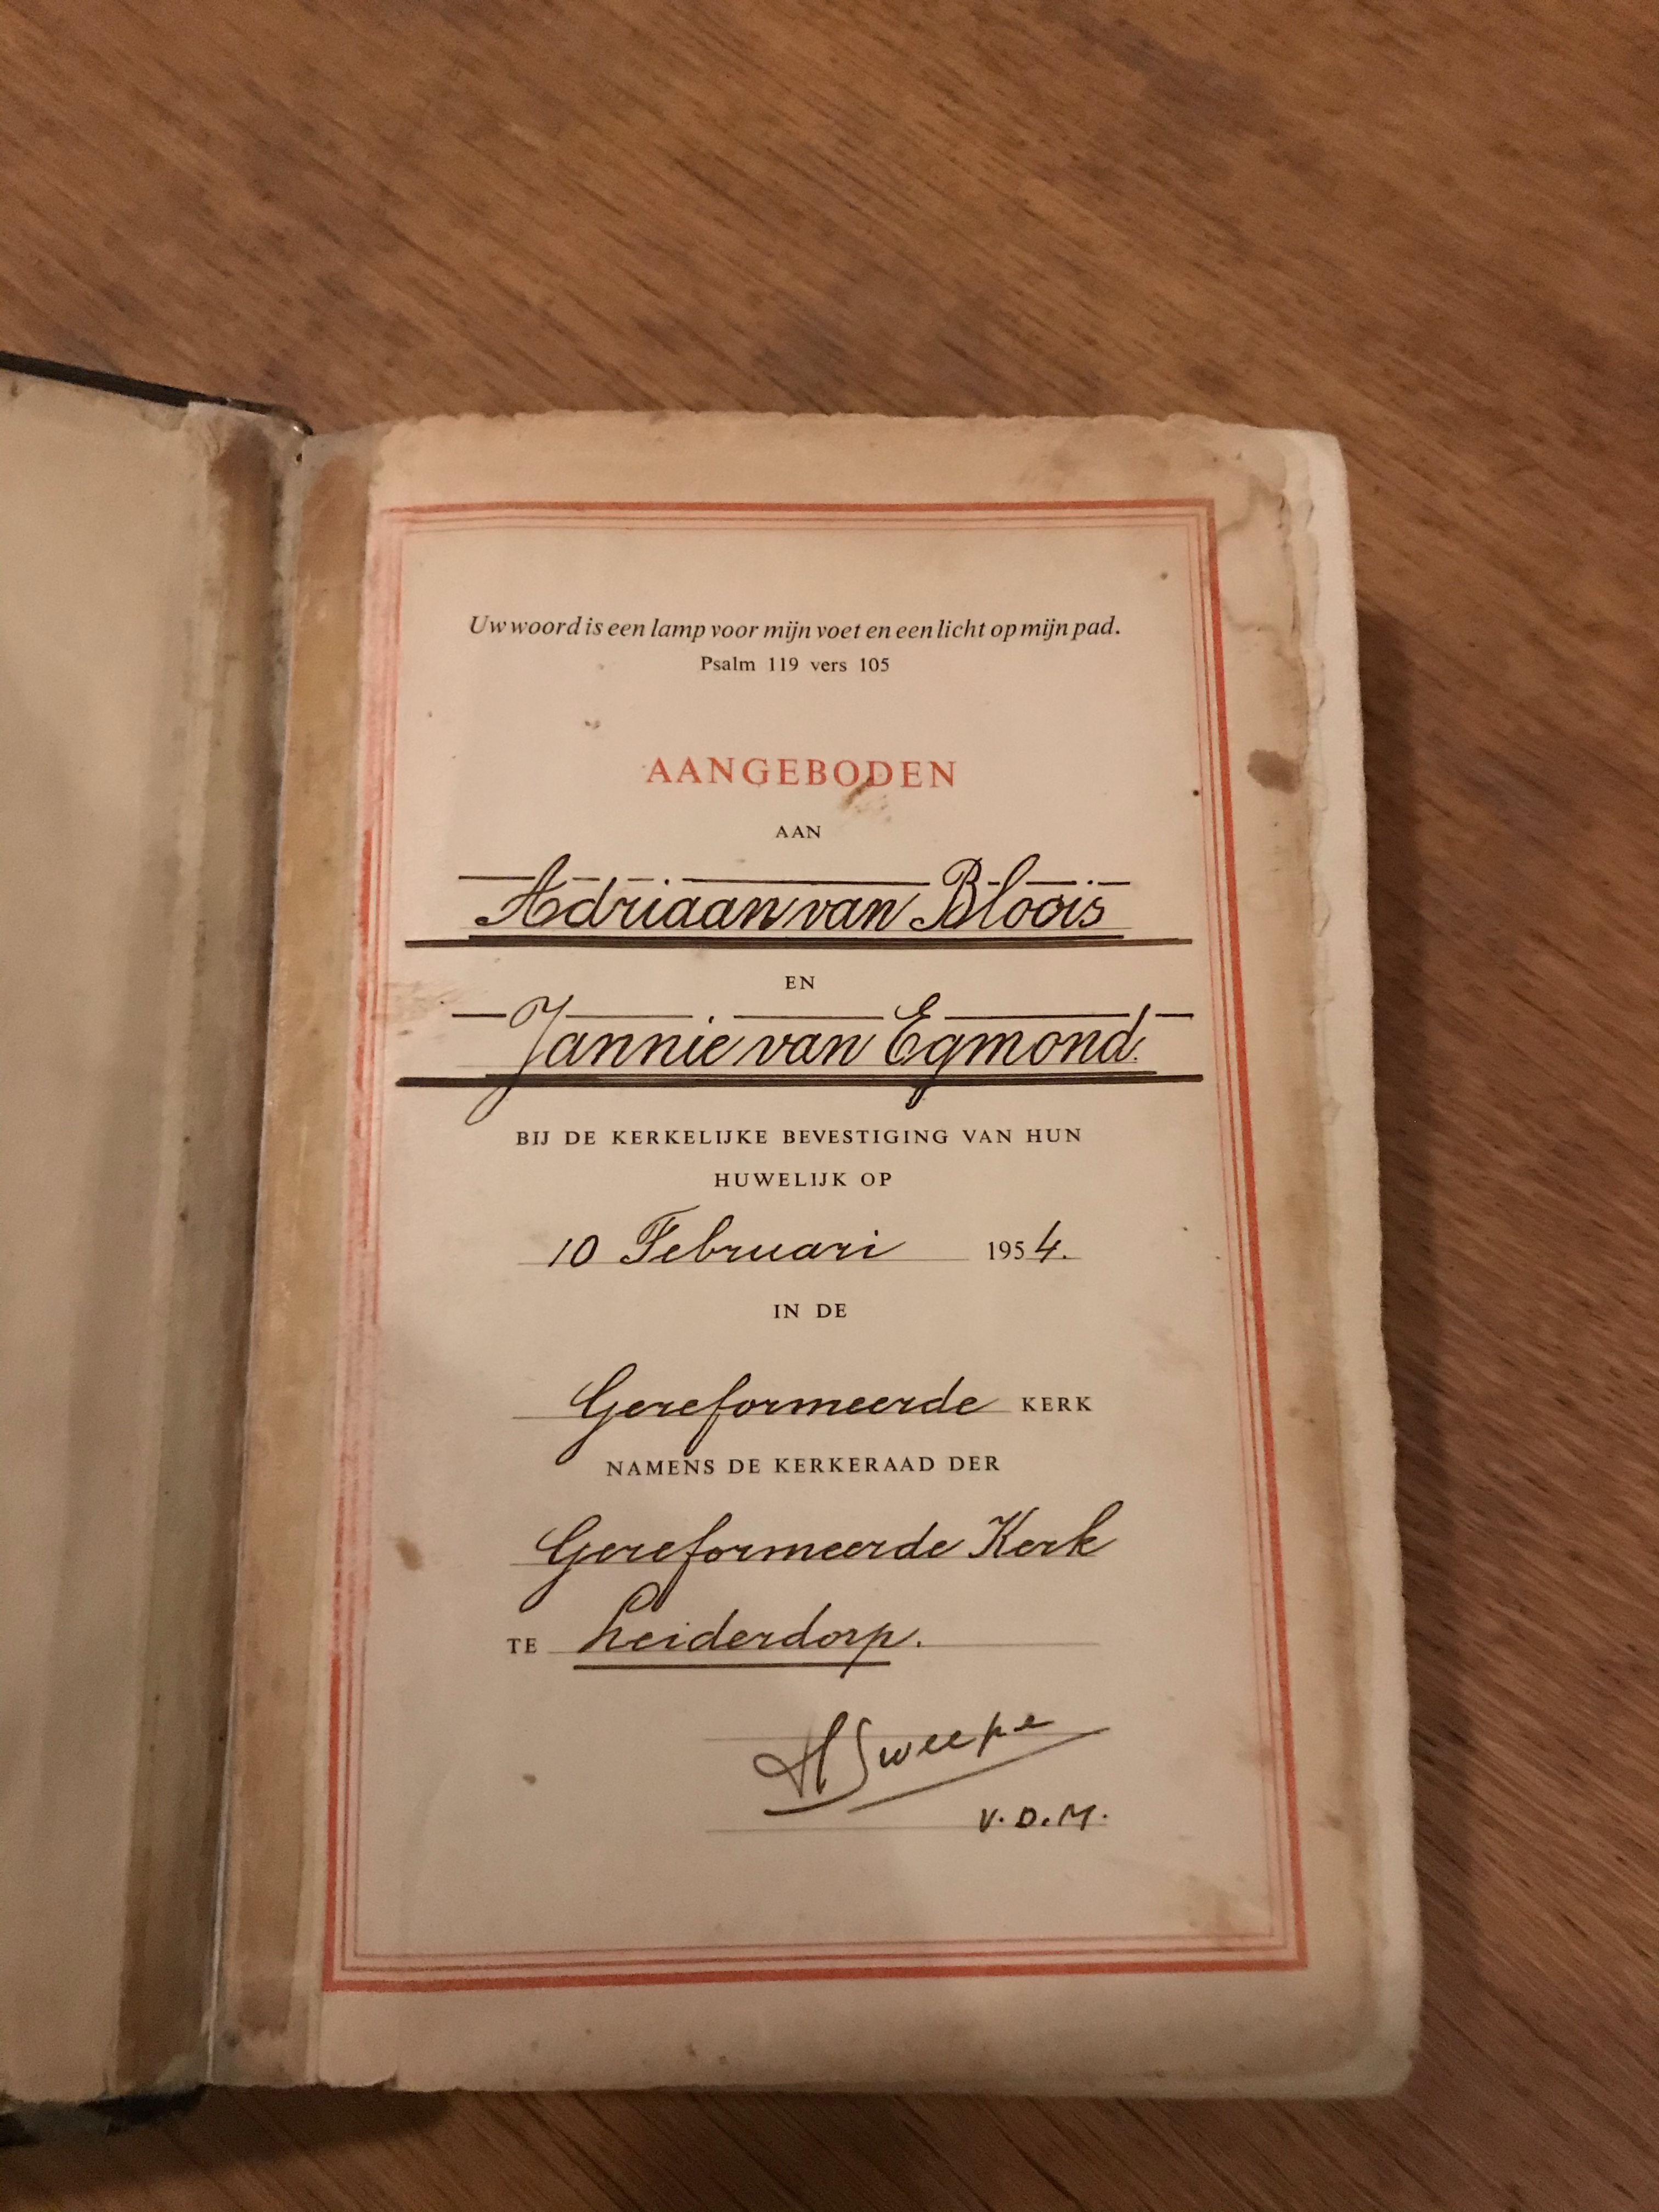 Uw woord is een lamp voor mijn voet en een licht op mijn pad.
Psalm 119 vers 105
AANGEBODEN
AAN
Adriaan van Bloois
EN
Jannie van Egmond.
BIJ DE KERKELIJKE BEVESTIGING VAN HUN
HUWELIJK OP
10 Februari 1954.
IN DE
Gereformeerde KERK
NAMENS DE KERKERAAD DER
Gereformeerde Kerk
TE Leiderdorp.
H Sweepe
V.D.M.